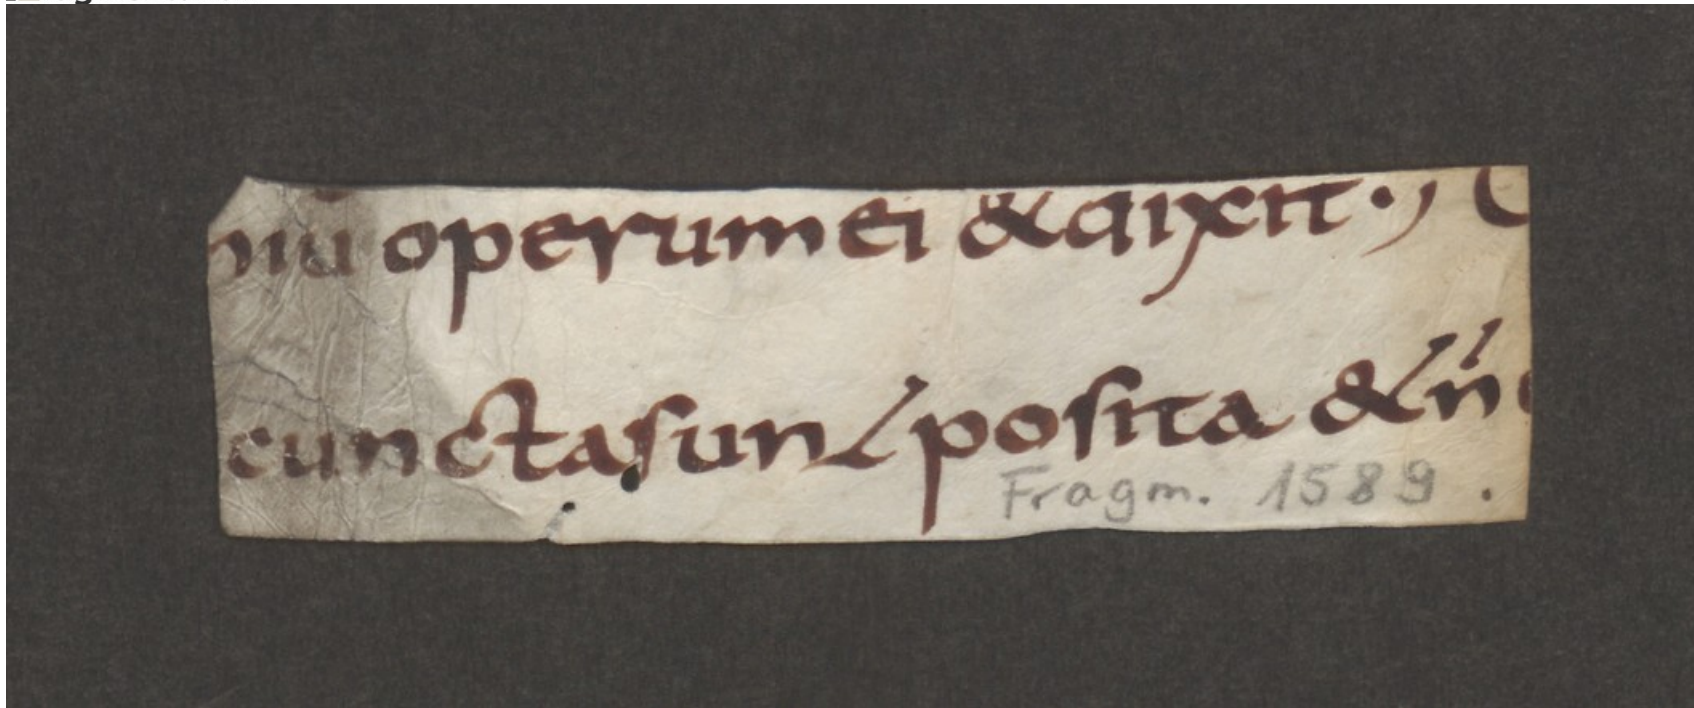 niū operum ei & dixit·,
cuncta sunt posita & ñ
Fragm. 1589.